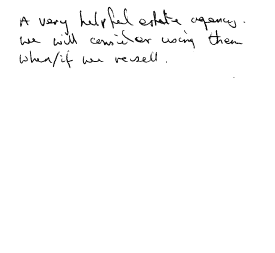 A very helpful estate agency.
We will consider using them
when/if we resell.